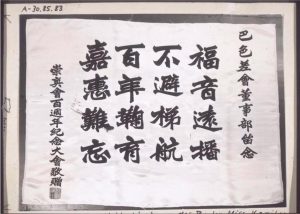 A-30.85.83
巴色差會董事部留念
福音遠播
不避梯航
百年鞠育
嘉惠難忘
崇真會百週年紀念大會敬贈